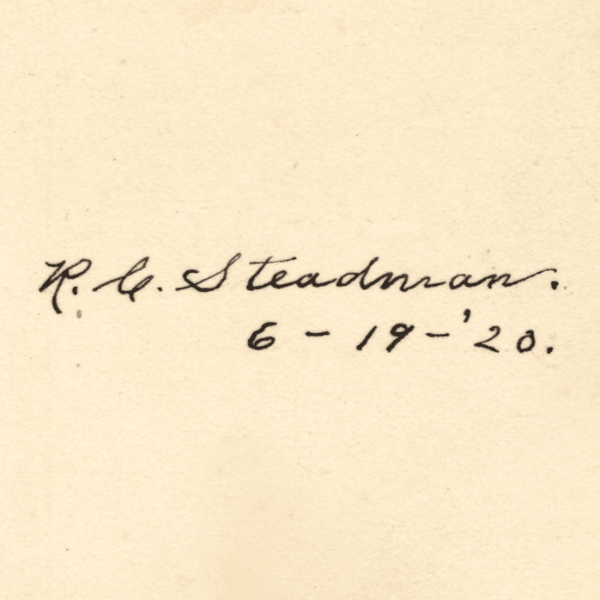 R. C. Steadman.
6 - 19 - '20.